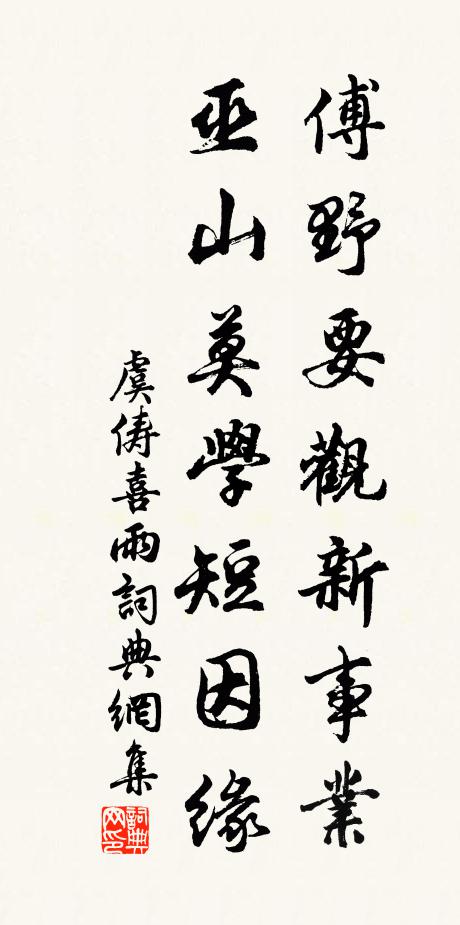 傅野要觀新事業
巫山莫學短因緣
虞儔喜雨詞典網集
詞典网印